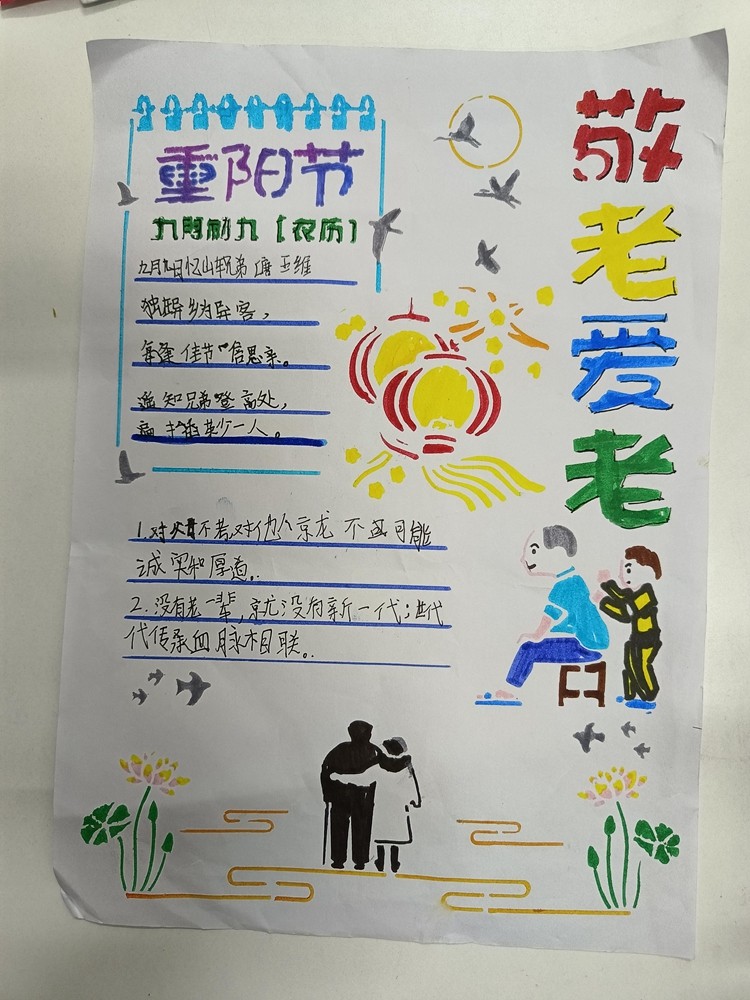 重阳节
九月初九【农历】
九月九日忆山东兄弟 唐 王维
独在异乡为异客，
每逢佳节倍思亲。
遥知兄弟登高处，
遍插茱萸少一人。
敬老爱老
1.对 不若对他人 京龙 不
诚实和厚道.
2.没有老一辈,就没有新一代;世代
代传承血脉相联.